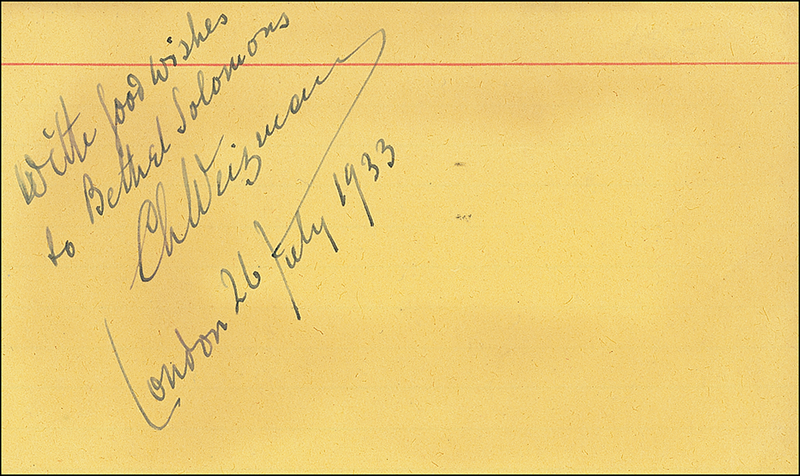 With good wishes
to Bethel Solomons
Ch Weizmann
London 26 July 1933